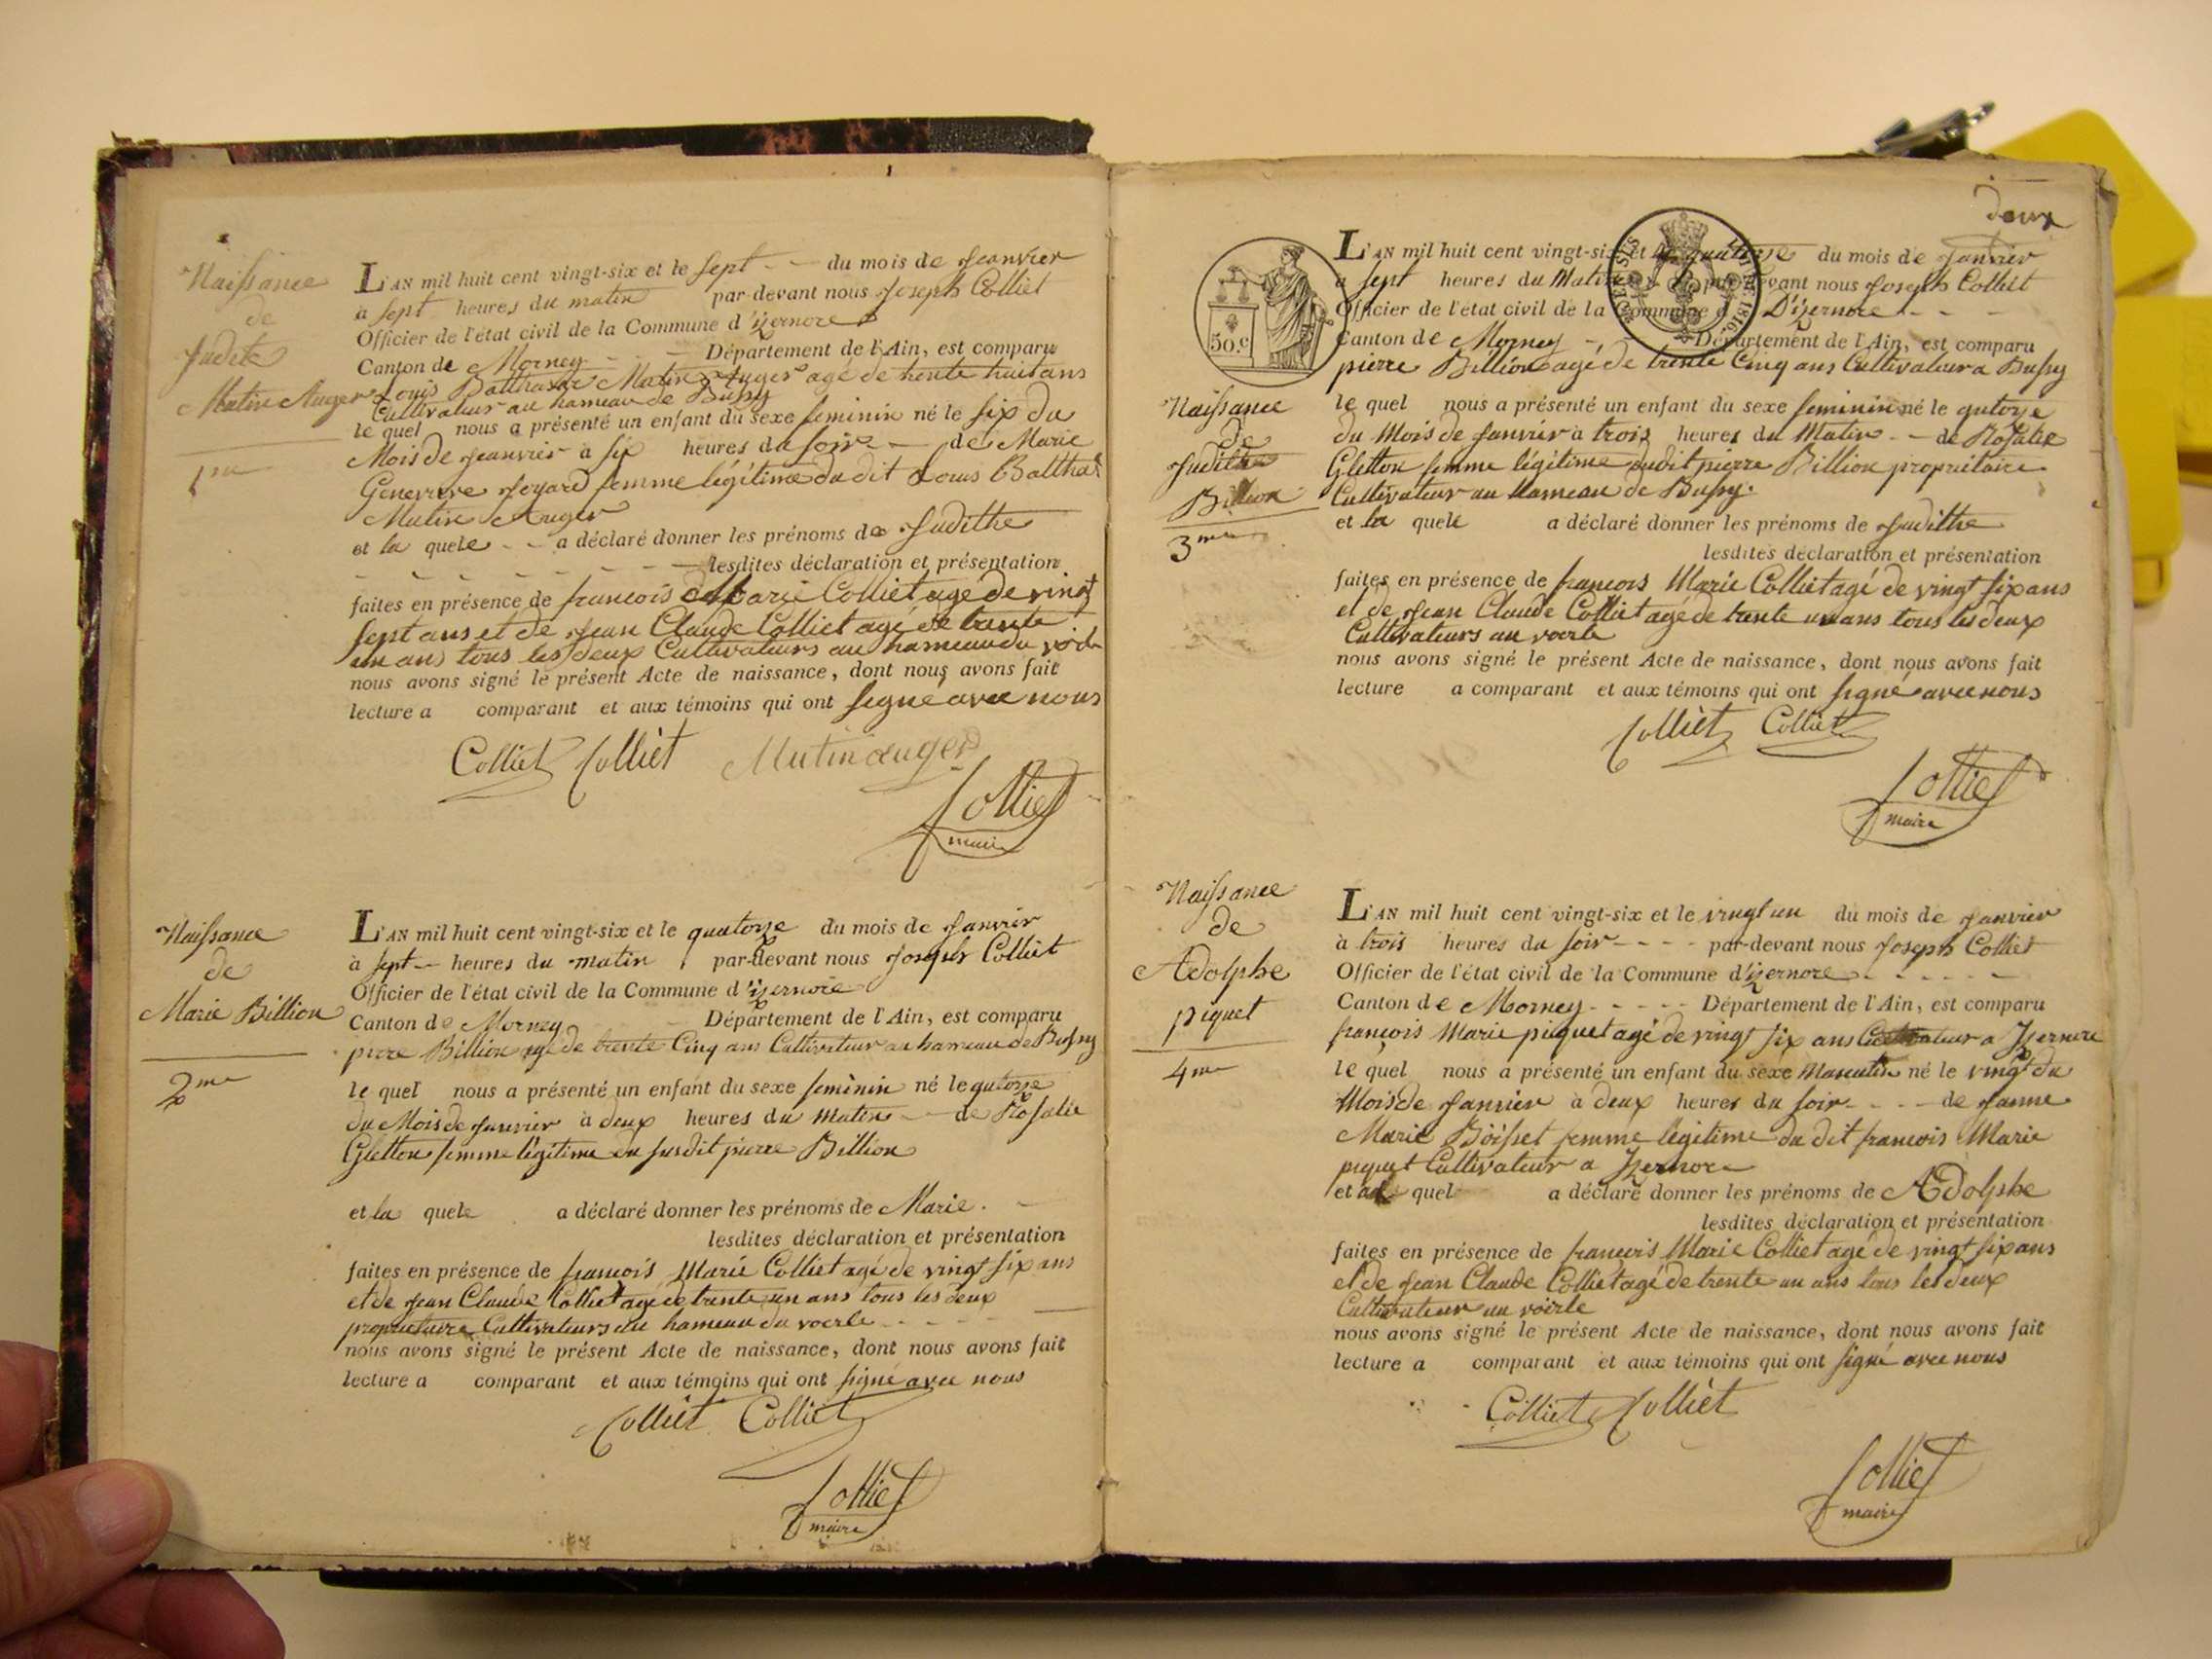 Naissance
de
Judith
Mutin Auger
1re
L'AN mil huit cent vingt-six et le sept du mois de Jeanvier
à sept heures du matin par-devant nous Joseph Colliet
Officier de l'état civil de la Commune d'izernore
Canton de Morney Département de l'Ain, est comparu
Louis Balthazar Mutin Auger agé de trente huit ans
Cultivateur au hameau de Bussy
le quel nous a présenté un enfant du sexe feminin né le six du
Mois de Jeanvier à six heures du soir de Marie
Genevieve Joyard femme légitime du dit Louis Balthar
Mutin Auger
et la quele a déclaré donner les prénoms de Judithe
lesdites déclaration et présentation
faites en présence de francois Marie Colliet agé de vingt
sept ans et de Jean Claude Colliet agé de trente
un ans tous les deux Cultivateurs au hameau du
nous avons signé le présent Acte de naissance, dont nous avons fait
lecture a comparant et aux témoins qui ont signé avec nous
Colliet Colliet Mutin auger
Colliet
maire
Naissance
de
Marie Billion
2me
L'AN mil huit cent vingt-six et le quatorze du mois de Janvier
à sept heures du matin par-devant nous Joseph Colliet
Officier de l'état civil de la Commune d'izernore
Canton de Morney Département de l'Ain, est comparu
pierre Billion agé de trente Cinq ans Cultivateur au hameau de Bussy
le quel nous a présenté un enfant du sexe feminin né le gutorze
du Mois de Janvier à deux heures du matin de Rosalie
Gletton femme légitime du susdit pierre Billion
et la quele a déclaré donner les prénoms de Marie.
lesdites déclaration et présentation
faites en présence de francois Marie Colliet agé de vingt six ans
et de Jean Claude Colliet agé de trente un ans tous les deux
propriétaire Cultivateurs au hameau du voerle
nous avons signé le présent Acte de naissance, dont nous avons fait
lecture a comparant et aux témoins qui ont signé avec nous
Colliet Colliet
Colliet
maire
deux
50.c
1816.
Naissance
de
Judithe
Billion
3me
L'AN mil huit cent vingt-six et le quatorze du mois de Janvier
à sept heures du Matin par-devant nous Joseph Colliet
Officier de l'état civil de la Commune d D'izernore
Canton de Morney Département de l'Ain, est comparu
pierre Billion agé de trente Cinq ans Cultivateur a Bussy
le quel nous a présenté un enfant du sexe feminin né le gutorze
du Mois de Janvier à trois heures du Matin de Rosalie
Gletton femme légitime dudit pierre Billion propriétaire
Cultivateur au hameau de Bussy.
et la quele a déclaré donner les prénoms de Judithe
lesdites déclaration et présentation
faites en présence de francois Marie Colliet agé de vingt six ans
et de Jean Claude Colliet agé de trente un ans tous les deux
Cultivateurs au voerle
nous avons signé le présent Acte de naissance, dont nous avons fait
lecture a comparant et aux témoins qui ont signé avec nous
Colliet Colliet
Colliet
maire
Naissance
de
Adolphe
piquet
4me
L'AN mil huit cent vingt-six et le vingt un du mois de Janvier
à trois heures du soir par-devant nous Joseph Colliet
Officier de l'état civil de la Commune d'izernore
Canton de Morney Département de l'Ain, est comparu
françois Marie piquet agé de vingt six ans Cultivateur a Izernore
le quel nous a présenté un enfant du sexe Masculin né le vingt du
Mois de Janvier à deux heures du soir de Janne
Marie Boisset femme légitime du dit francois Marie
piquet Cultivateur a Izernore
et quel a déclaré donner les prénoms de Adolphe
lesdites déclaration et présentation
faites en présence de françois Marie Colliet agé de vingt six ans
et de Jean Claude Colliet agé de trente un ans tous les deux
Cultivateur au voirle
nous avons signé le présent Acte de naissance, dont nous avons fait
lecture a comparant et aux témoins qui ont signé avec nous
Colliet Colliet
Colliet
maire